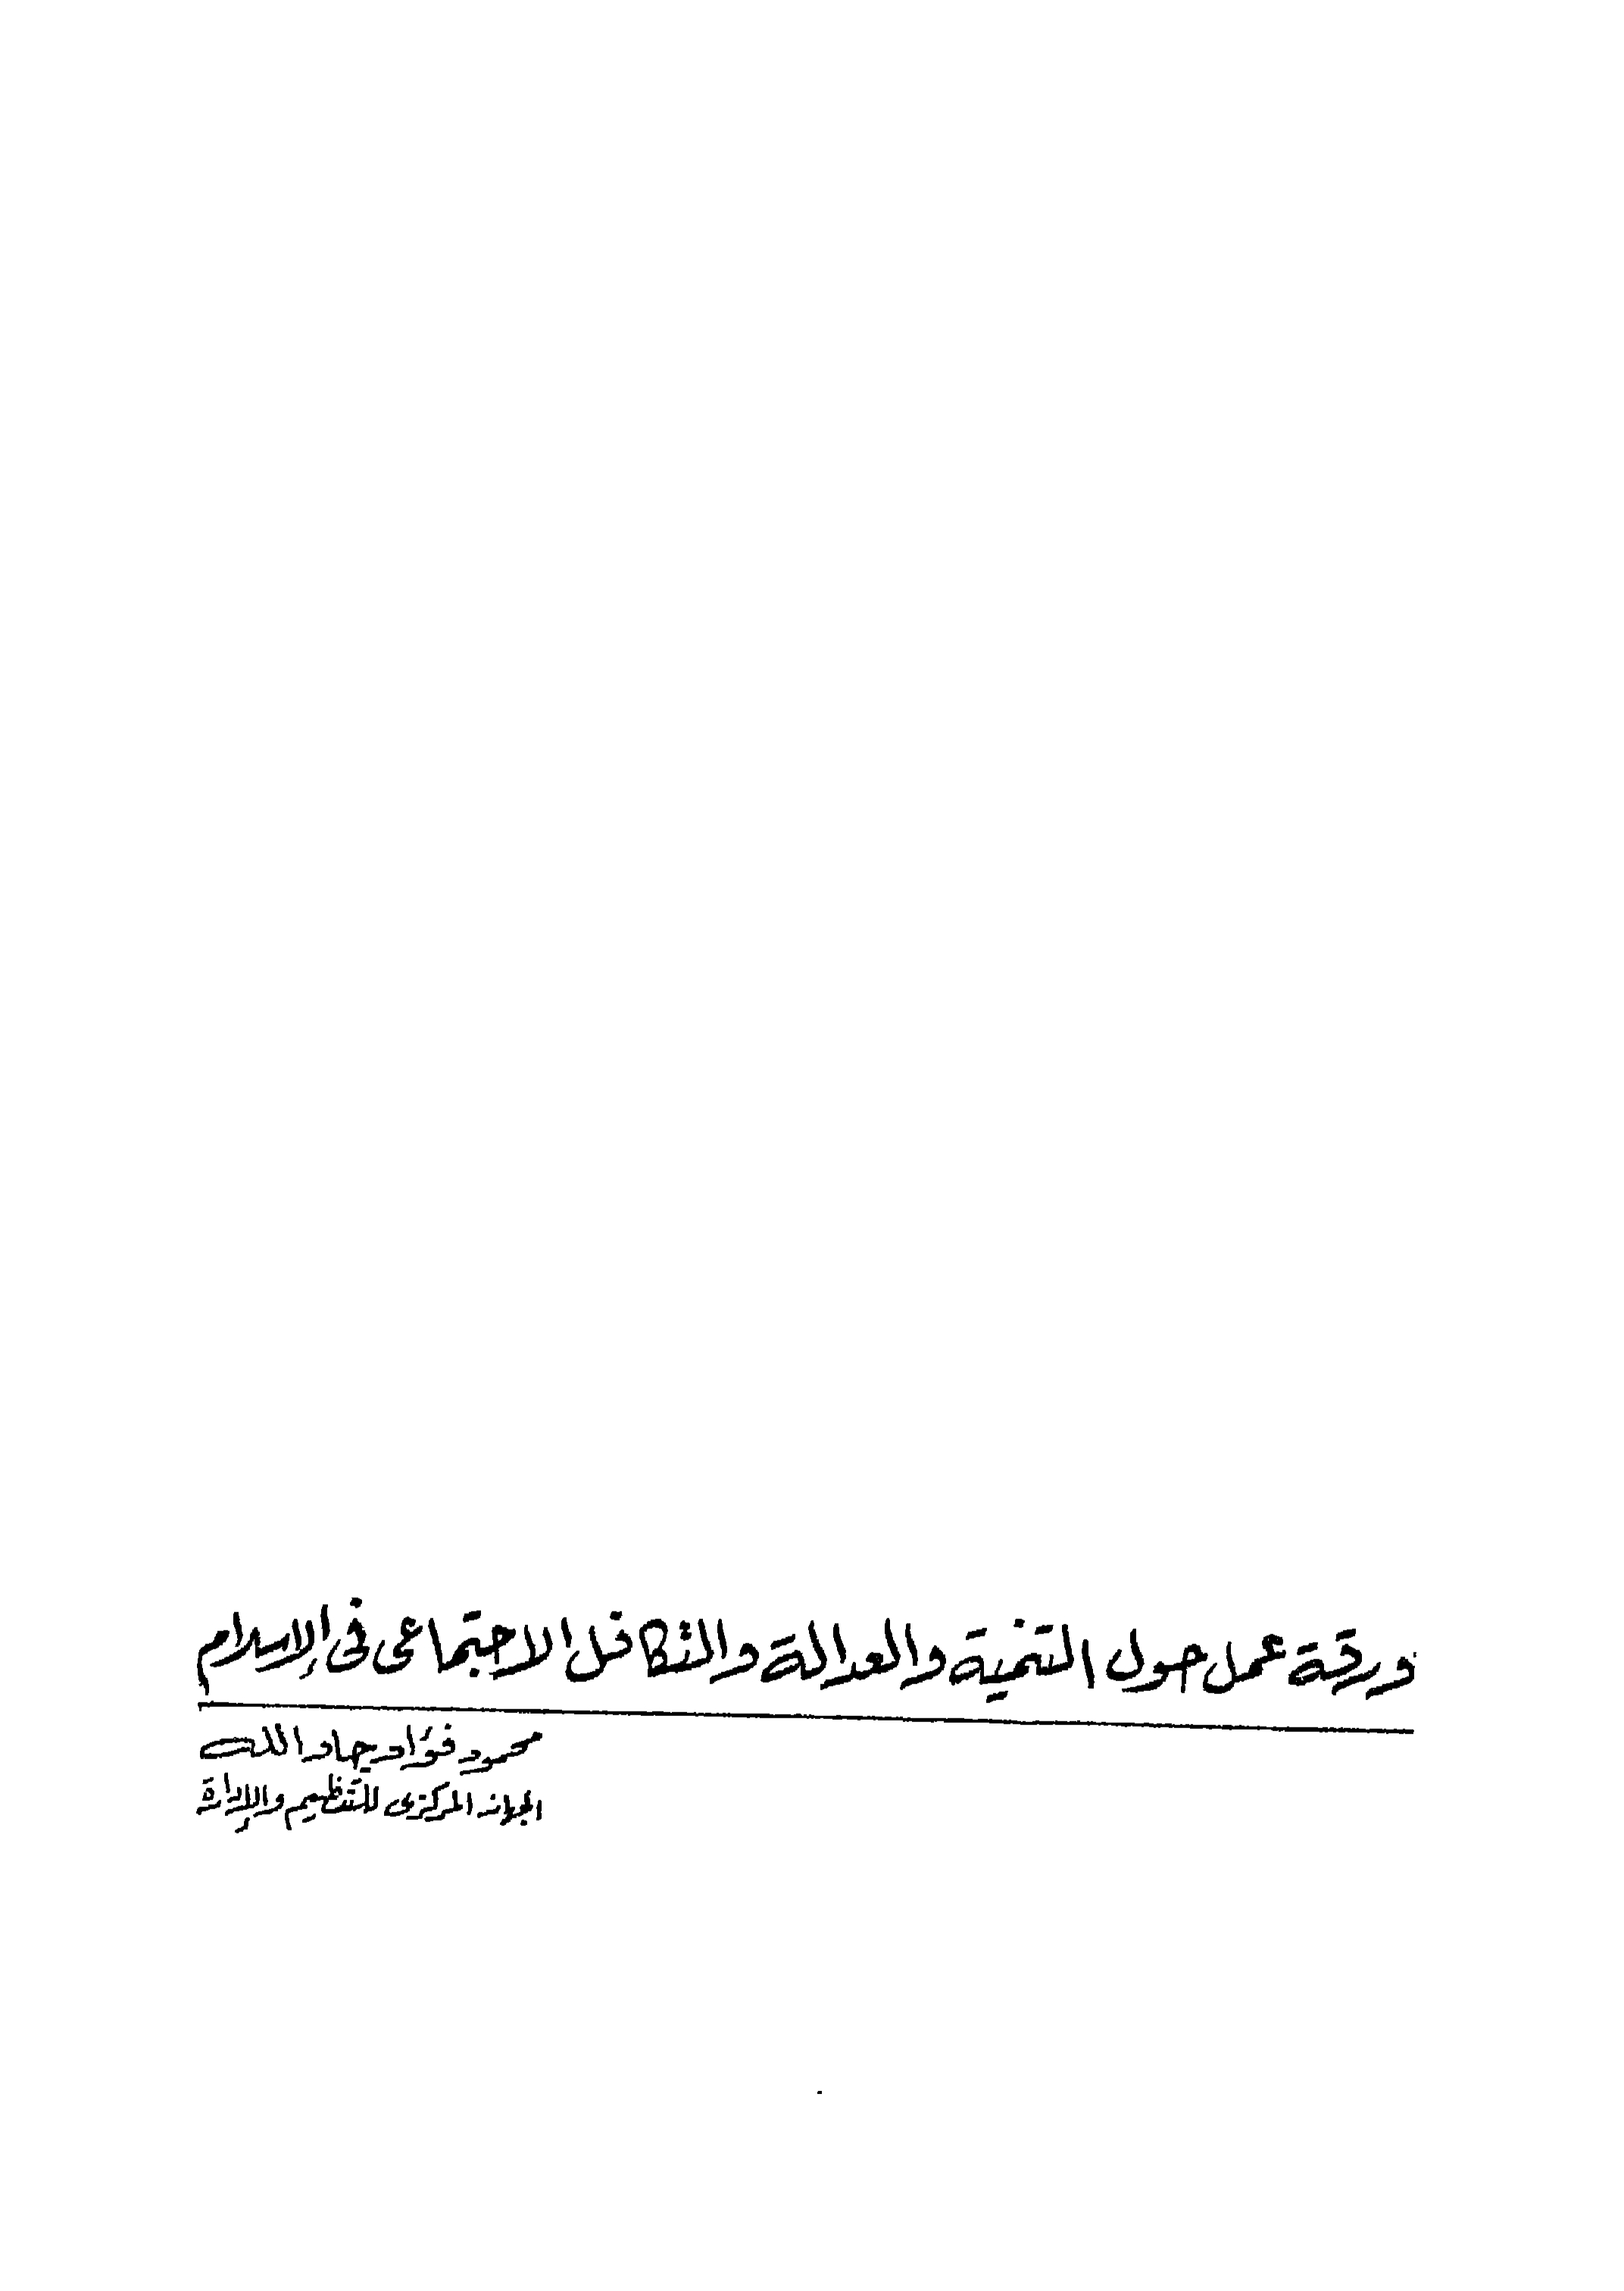 ورقة عمل حول التنمية والعدالة والتكافل الاجتماعى فى الإسلام
محمود فؤاد جاد الله
الجهاز المركزى للتنظيم والإدارة